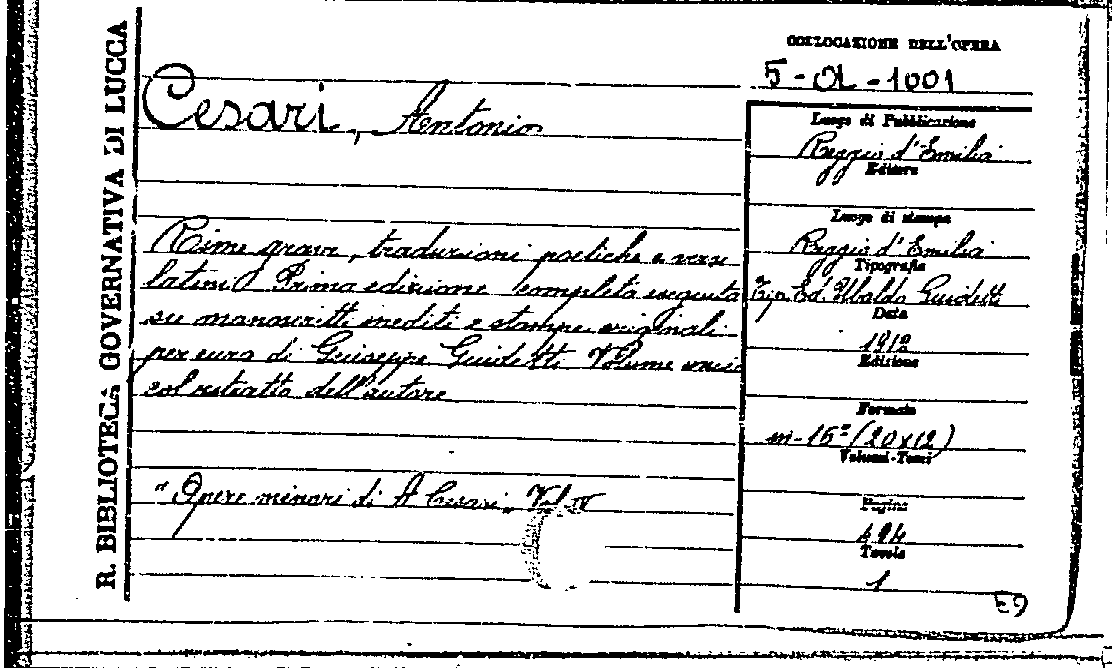 R. BIBLIOTECA GOVERNATIVA DI LUCCA
Cesari, Antonio
Rime gravi, traduzioni poetiche e versi
latini Prima edizione completa eseguita
su manoscritti inediti e stampe originali
per cura di Giuseppe Guidetti Volume unico
col ritratto dell'autore
"Opere minori di A Cesari" Vol IV
COLLOCAZIONE DELL'OPERA
5-a-1001
Luogo di Pubblicazione
Reggio d'Emilia
Editore
Luogo di stampa
Reggio d'Emilia
Tipografia
Tip. Ed. Ubaldo Guidetti
Data
1912
Edizione
Formato
in-16° (20x12)
Volumi-Tomi
Pagine
Tavole
1